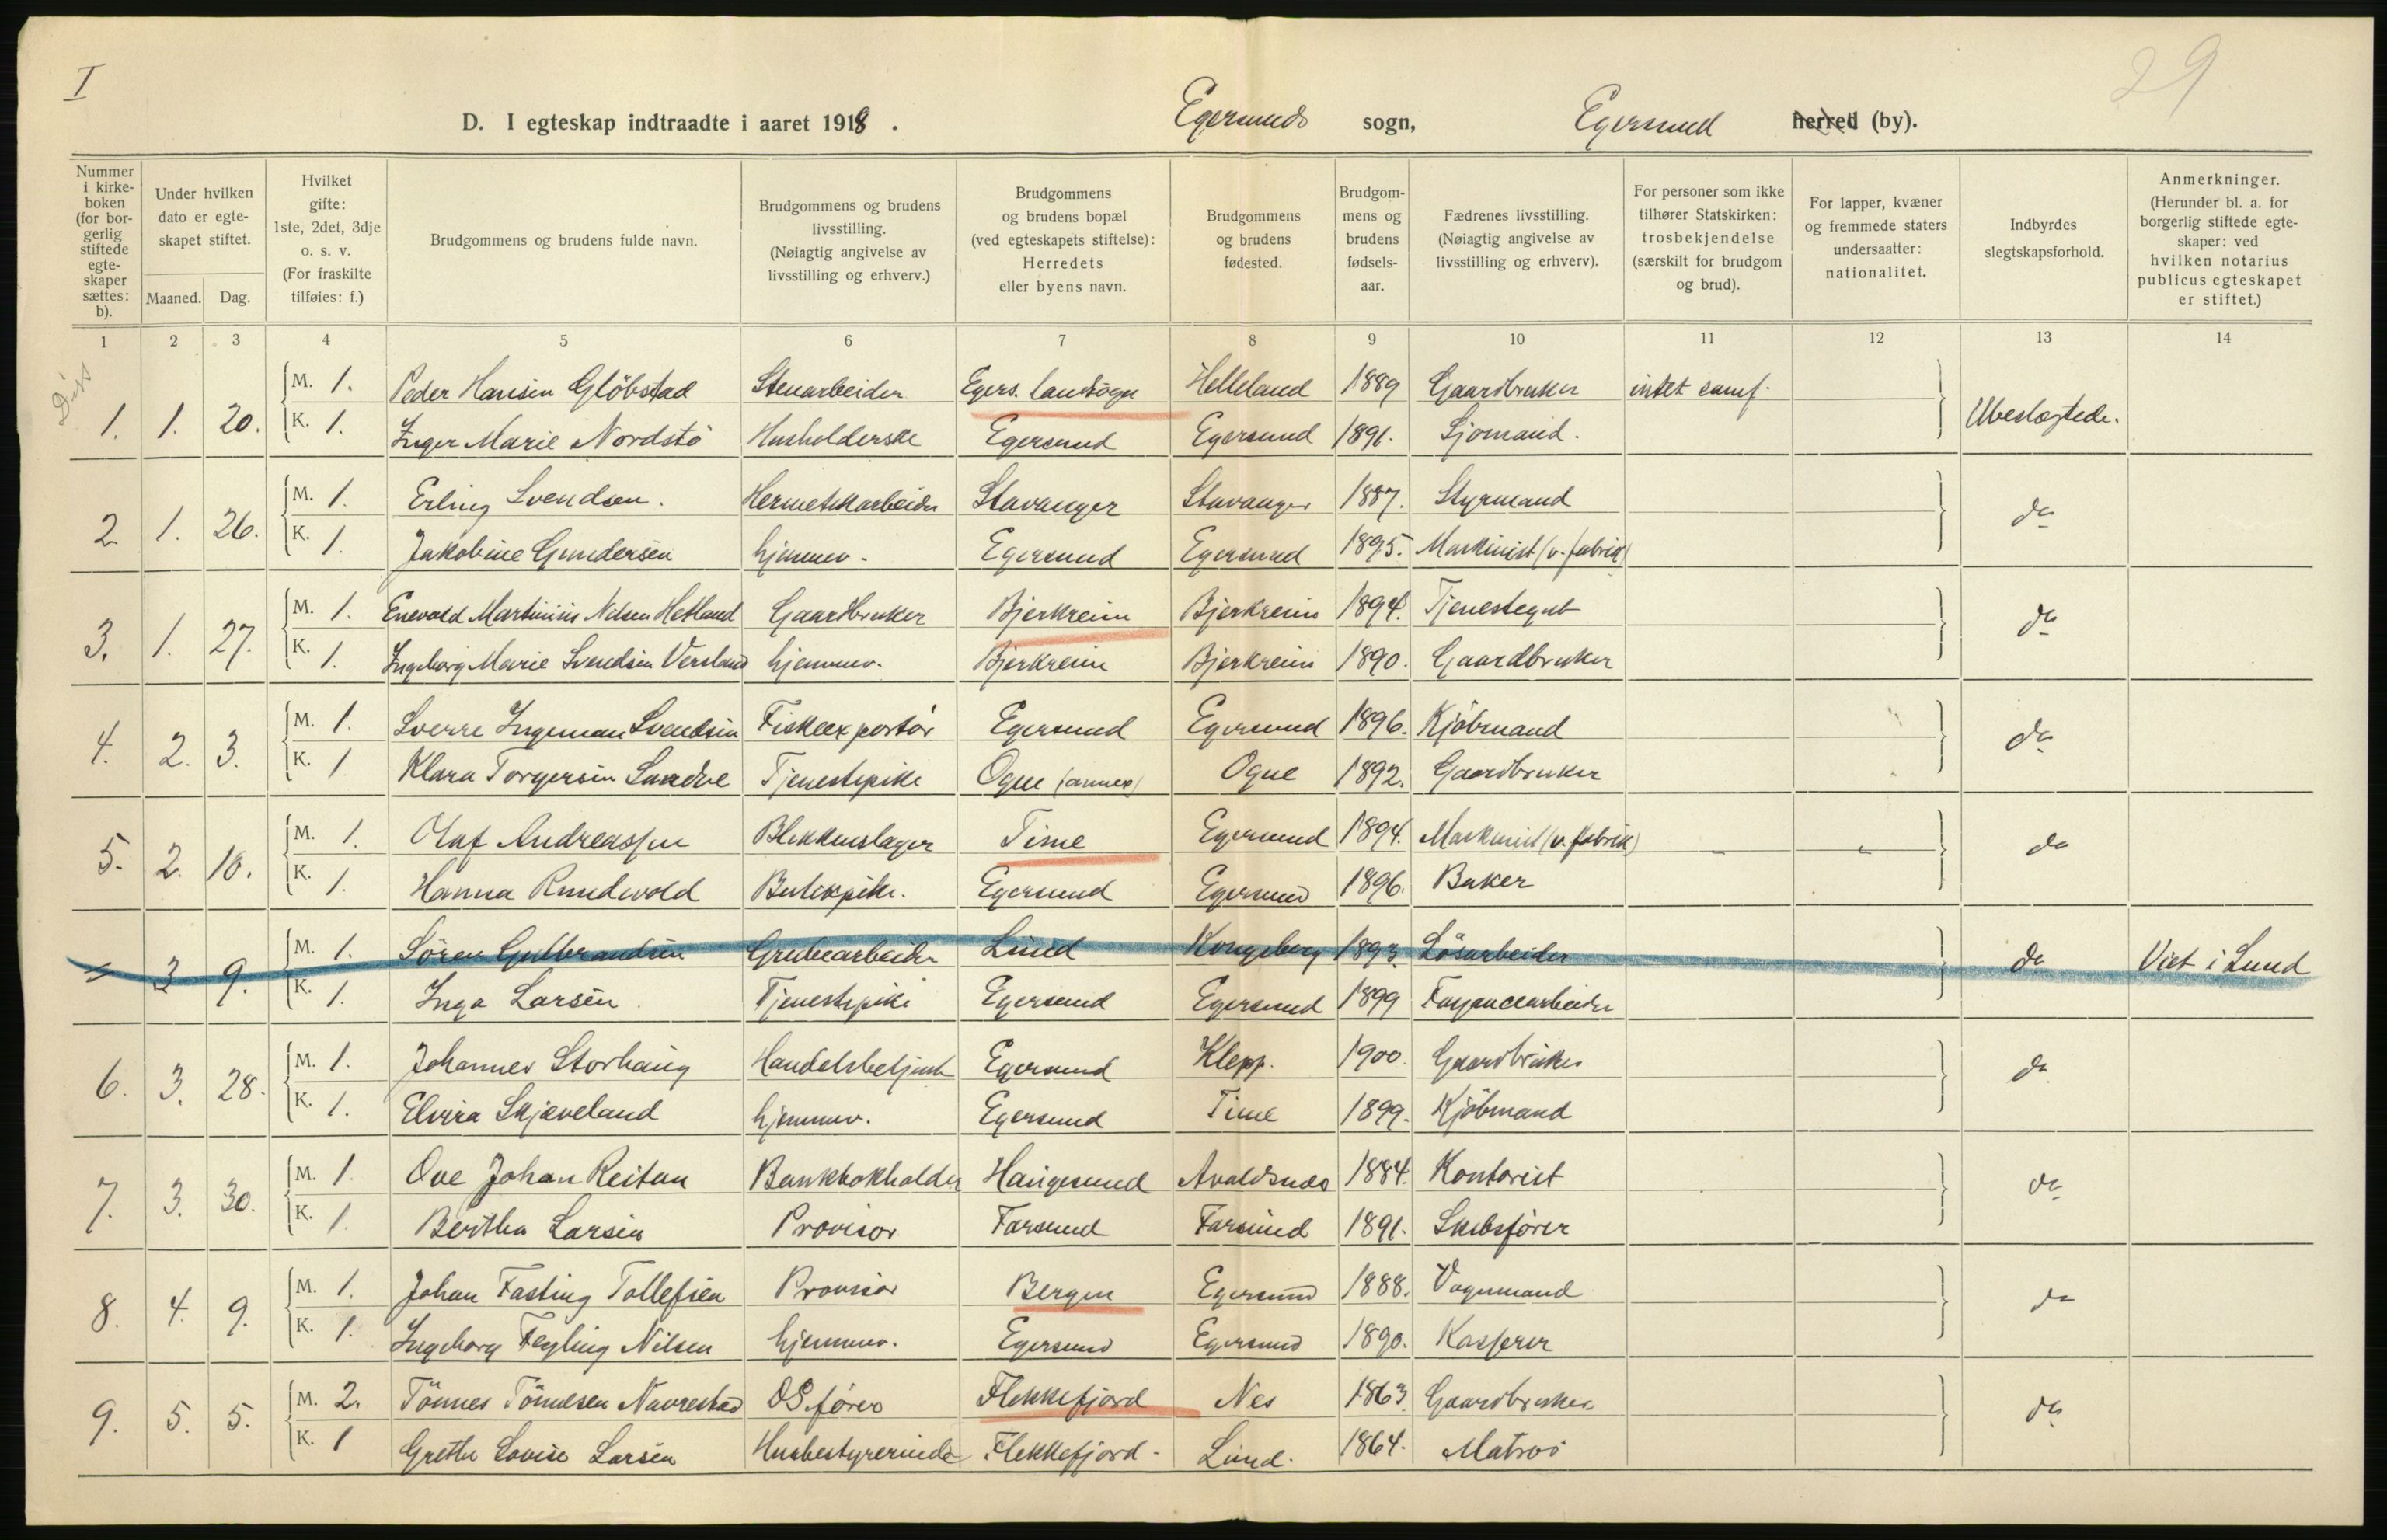 I
29
D. I egteskap indtraadte i aaret 1918 . Egersunds sogn, Egersund herred (by).
Nummer i kirkeboken (for borgerlig stiftede egteskaper sættes: b).
Under hvilken dato er egteskapet stiftet.
Maaned. Dag.
Hvilket gifte: 1ste, 2det, 3dje o. s. v. (For fraskilte tilføies: f.)
Brudgommens og brudens fulde navn.
Brudgommens og brudens livsstilling. (Nøiagtig angivelse av livsstilling og erhverv.)
Brudgommens og brudens bopæl (ved egteskapets stiftelse): Herredets eller byens navn.
Brudgommens og brudens fødested.
Brudgommens og brudens fødselsaar.
Fædrenes livsstilling. (Nøiagtig angivelse av livsstilling og erhverv).
For personer som ikke tilhører Statskirken: trosbekjendelse (særskilt for brudgom og brud).
For lapper, kvæner og fremmede staters undersaatter: nationalitet.
Indbyrdes slegtskapsforhold.
Anmerkninger. (Herunder bl. a. for borgerlig stiftede egteskaper: ved hvilken notarius publicus egteskapet er stiftet.)
1 2 3 4 5 6 7 8 9 10 11 12 13 14
Diss
M. 1. Peder Hansen Glöbstad Stenarbeider Egers. landsogn Helleland 1889 Gaardbruker intet samf.
1. 1. 20. K. 1. Inger Marie Nordstö Husholderske Egersund Egersund 1891. Sjømand. Ubeslægtede.
M. 1. Erling Svendsen. Hermetikarbeider Stavanger Stavanger 1887. Styrmand
2 1. 26. K. 1. Jakobine Gundersen hjemmev. Egersund Egersund 1895. Maskinist (v. fabrik) do
M. 1. Enevald Martinius Nilsen Hetland Gaardbruker Bjerkreim Bjerkreim 1894. Tjenestegut
3. 1. 27. K. 1. Ingeborg Marie Svendsen Versland hjemmev. Bjerkreim Bjerkreim 1890. Gaardbruker do
M. 1. Sverre Ingeman Svendsen Fiskeexportör Egersund Egersund 1896. Kjöbmand
4. 2. 3. K. 1 Klara Torgersen Sandve Tjenestepike Ogne (annex) Ogne 1892. Gaardbruker do
M. 1. Olaf Andreassen Blikkenslager Time Egersund 1894. Maskinist (v. fabrik)
5. 2. 10. K. 1. Hanna Rundwold Butikpike. Egersund Egersund 1896. Baker do
M. 1. Sören Gulbrandsen Grubearbeider Lund Kongsberg 1893. Lösarbeider
" 3 9. K. 1. Inga Larsen. Tjenestepike Egersund Egersund 1899 Fayancearbeider do Viet i Lund
M. 1. Johannes Storhaug Handelsbetjent Egersund Klepp. 1900. Gaardbruker
6. 3. 28. K. 1. Elvira Skjæveland hjemmev. Egersund Time 1899. Kjöbmand do
M. 1. Ove Johan Reitan Bankbokholder Haugesund Avaldsnes 1884. Kontorist
7. 3. 30. K. 1. Bertha Larsen Provisor Farsund Farsund 1891. Skibsfører do
M. 1. Johan Fasting Tollefsen Provisor Bergen Egersund 1888. Vognmand
8. 4. 9. K. 1. Ingeborg Feyling Nilsen hjemmev. Egersund Egersund 1890. Kasserer do
M. 2. Tönnes Tönnesen Navrestad OS.fører Flekkefjord Nes 1863. Gaardbruker
9. 5. 5. K. 1 Grethe Lovise Larsen Husbestyrerinde Flekkefjord. Lund. 1864. Matros do